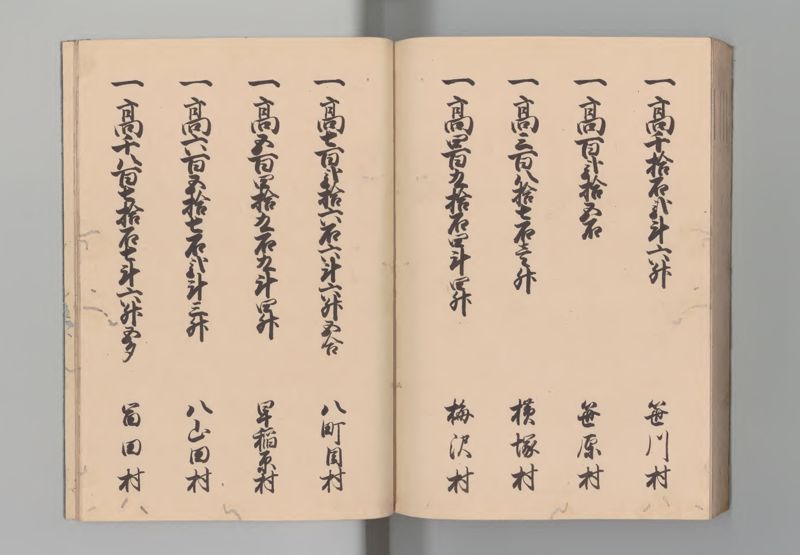 一高千拾石弐斗六升 笹川村
一高百弐拾五石 笹原村
一高三百八拾七石壱升 横塚村
一高四百九拾石四斗四升 梅沢村
一高七百弐拾六石六斗六升五合 八町目村
一高五百四拾九石九斗四升 早稲原村
一高六百五拾七石弐斗三升 八山田村
一高千八百七拾石七斗六升五夕 富田村